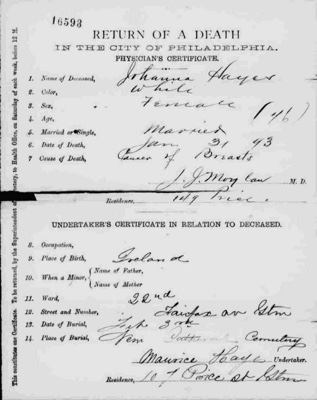 16593
RETURN OF A DEATH
IN THE CITY OF PHILADELPHIA.
PHYSICIAN'S CERTIFICATE.
1. Name of Deceased, Johanna Hayes
2. Color, White
3. Sex, Female
4. Age, (46)
5. Married or Single, Married
6. Date of Death, Jan 31 93
7. Cause of Death, Cancer of Breasts
J. J. Moylan M. D.
Residence, 149 Price.
UNDERTAKER'S CERTIFICATE IN RELATION TO DECEASED.
8. Occupation,
9. Place of Birth, Ireland
10. When a Minor, { Name of Father,
Name of Mother
11. Ward, 22nd
12. Street and Number, Fairfax av Gtn
13. Date of Burial, Feb 3rd
14. Place of Burial, New Cemetery
Maurice Haye Undertaker.
Residence, Price st Gtn
This constitutes one Certificate. To be returned, by the Superintendent of Cemetery, to Health Office, on Saturday of each week, before 12 M.